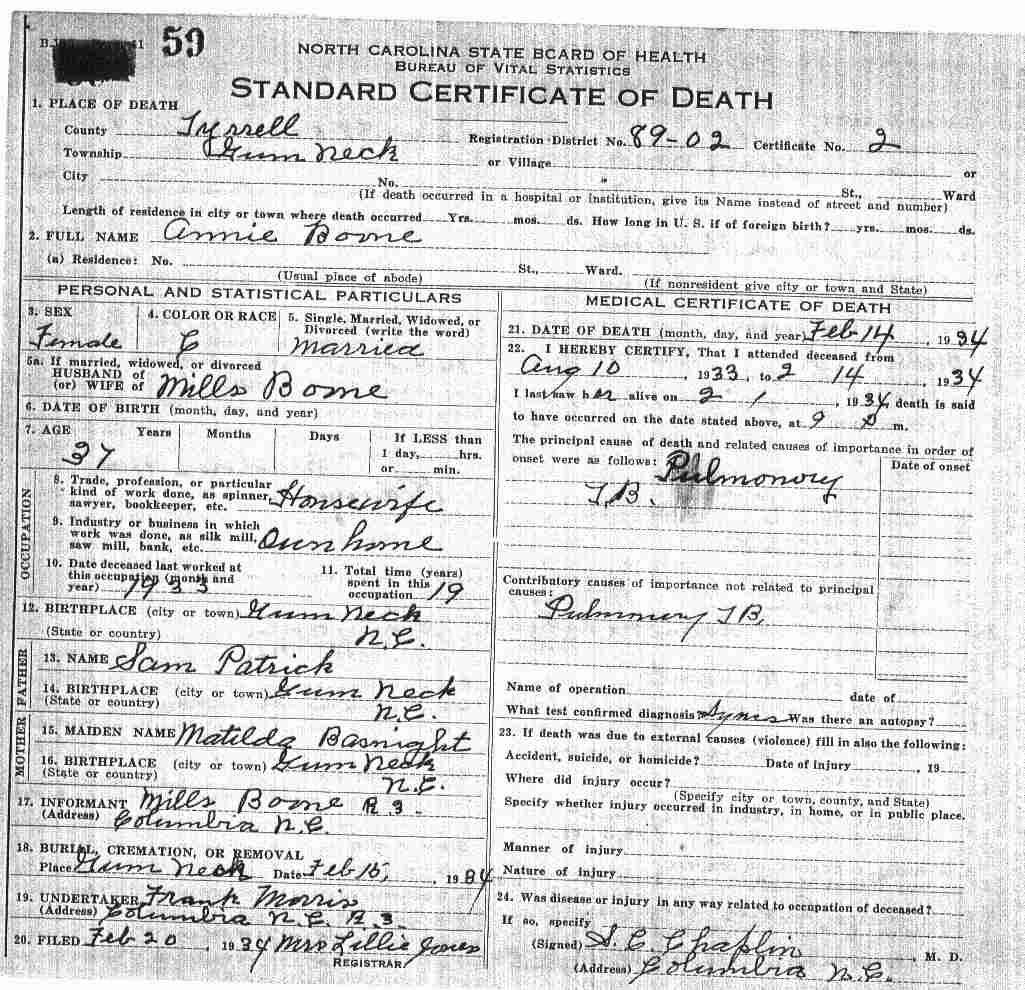 59
NORTH CAROLINA STATE BOARD OF HEALTH
BUREAU OF VITAL STATISTICS
STANDARD CERTIFICATE OF DEATH
1. PLACE OF DEATH
County Tyrrell Registration District No. 89-02 Certificate No. 2
Township Gum Neck or Village or
City No. St., Ward
(If death occurred in a hospital or institution, give its Name instead of street and number)
Length of residence in city or town where death occurred Yrs. mos. ds. How long in U. S. if of foreign birth? yrs. mos. ds.
2. FULL NAME Annie Boone
(a) Residence: No. St., Ward.
(Usual place of abode) (If nonresident give city or town and State)
PERSONAL AND STATISTICAL PARTICULARS
3. SEX 4. COLOR OR RACE 5. Single, Married, Widowed, or
Divorced (write the word)
Female C Married
5a. If married, widowed, or divorced
HUSBAND OF
(or) WIFE of Mills Boone
6. DATE OF BIRTH (month, day, and year)
7. AGE Years Months Days If LESS than
1 day, hrs.
or min.
37
8. Trade, profession, or particular
kind of work done, as spinner,
sawyer, bookkeeper, etc. Housewife
9. Industry or business in which
work was done, as silk mill,
saw mill, bank, etc. Own home
OCCUPATION
10. Date deceased last worked at
this occupation (month and
year) 1933
11. Total time (years)
spent in this
occupation 19
12. BIRTHPLACE (city or town) Gum Neck
(State or country) N.C.
FATHER
13. NAME Sam Patrick
14. BIRTHPLACE (city or town) Gum Neck
(State or country) N.C.
MOTHER
15. MAIDEN NAME Matilda Basnight
16. BIRTHPLACE (city or town) Gum Neck
(State or country) N.C.
17. INFORMANT Mills Boone R 3
(Address) Columbia N.C.
18. BURIAL, CREMATION, OR REMOVAL
Place Gum Neck Date Feb 15, 1934
19. UNDERTAKER Frank Morris
(Address) Columbia N.C. R 3
20. FILED Feb 20, 1934 Mrs Lillie Jones
REGISTRAR
MEDICAL CERTIFICATE OF DEATH
21. DATE OF DEATH (month, day, and year) Feb 14, 1934
22. I HEREBY CERTIFY, That I attended deceased from
Aug 10, 1933, to 2 14, 1934
I last saw her alive on 2 1, 1934, death is said
to have occurred on the date stated above, at 9 P m.
The principal cause of death and related causes of importance in order of
onset were as follows: Date of onset
Pulmonory
T.B.
Contributory causes of importance not related to principal
causes:
Pulmonory T B,
Name of operation date of
What test confirmed diagnosis? Was there an autopsy?
23. If death was due to external causes (violence) fill in also the following:
Accident, suicide, or homicide? Date of injury , 19
Where did injury occur?
(Specify city or town, county, and State)
Specify whether injury occurred in industry, in home, or in public place.
Manner of injury
Nature of injury
24. Was disease or injury in any way related to occupation of deceased?
If so, specify
(Signed) S. C. Chaplin, M. D.
(Address) Columbia N.C.